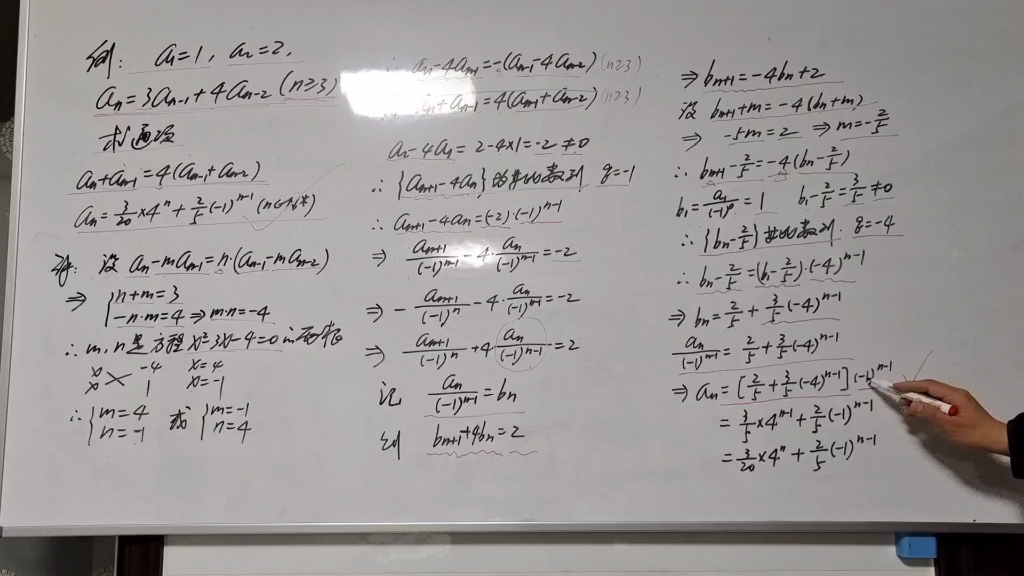 例: a₁=1, a₂=2,
aₙ=3aₙ₋₁+4aₙ₋₂ (n≥3)
求通项
aₙ+aₙ₋₁=4(aₙ₋₁+aₙ₋₂)
aₙ=3/20×4ⁿ+2/5(-1)ⁿ⁻¹ (n∈N*)
解: 设 aₙ-maₙ₋₁=n·(aₙ₋₁-maₙ₋₂)
⇒ {n+m=3
-n·m=4 ⇒ m·n=-4
∴ m,n是方程x²-3x-4=0的两根
x -4 x=4
x 1 x=-1
∴ {m=4 或 {m=-1
n=-1 n=4
∴ aₙ-4aₙ₋₁=-(aₙ₋₁-4aₙ₋₂) (n≥3)
aₙ+aₙ₋₁=4(aₙ₋₁+aₙ₋₂) (n≥3)
a₂-4a₁=2-4×1=-2≠0
∴ {aₙ₊₁-4aₙ}为等比数列 q=-1
∴ aₙ₊₁-4aₙ=(-2)·(-1)ⁿ⁻¹
⇒ aₙ₊₁/(-1)ⁿ⁻¹-4·aₙ/(-1)ⁿ⁻¹=-2
⇒ -aₙ₊₁/(-1)ⁿ-4·aₙ/(-1)ⁿ⁻¹=-2
⇒ aₙ₊₁/(-1)ⁿ+4·aₙ/(-1)ⁿ⁻¹=2
记 aₙ/(-1)ⁿ⁻¹=bₙ
则 bₙ₊₁+4bₙ=2
⇒ bₙ₊₁=-4bₙ+2
设 bₙ₊₁+m=-4(bₙ+m)
⇒ -5m=2 ⇒ m=-2/5
∴ bₙ₊₁-2/5=-4(bₙ-2/5)
b₁=a₁/(-1)⁰=1 b₁-2/5=3/5≠0
∴ {bₙ-2/5}等比数列 q=-4
∴ bₙ-2/5=(b₁-2/5)·(-4)ⁿ⁻¹
⇒ bₙ=2/5+3/5(-4)ⁿ⁻¹
aₙ/(-1)ⁿ⁻¹=2/5+3/5(-4)ⁿ⁻¹
⇒ aₙ=[2/5+3/5(-4)ⁿ⁻¹](-1)ⁿ⁻¹
=3/5×4ⁿ⁻¹+2/5(-1)ⁿ⁻¹
=3/20×4ⁿ+2/5(-1)ⁿ⁻¹